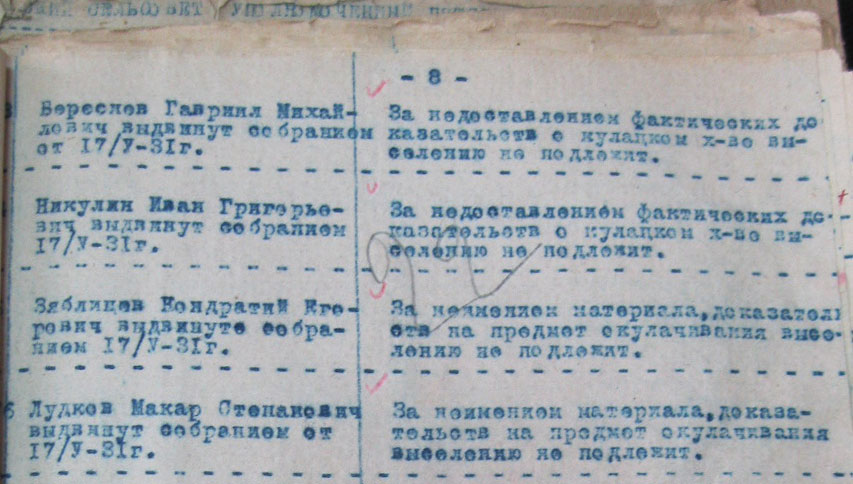 сельсовет уполномоченный
- 8 -
Береснев Гавриил Михай-
лович выдвинут собранием
от 17/У-31г.
За недоставлением фактических до
казательств о кулацком х-ве вы-
селению не подлежит.
Никулин Иван Григорье-
вич выдвинут собранием
17/У-31г.
За недоставлением фактических до-
казательств о кулацком х-ве вы-
селению не подлежит.
92
Зяблицев Кондратий Его-
рович выдвинуте собра-
нием 17/У-31г.
За неимением материала,доказатель
ств на предмет окулачивания высе-
лению не подлежит.
6 Лудков Макар Степанович
выдвинут собранием от
17/У-31г.
За неимением материала,доказа-
тельств на предмет окулачивания
выселению не подлежит.